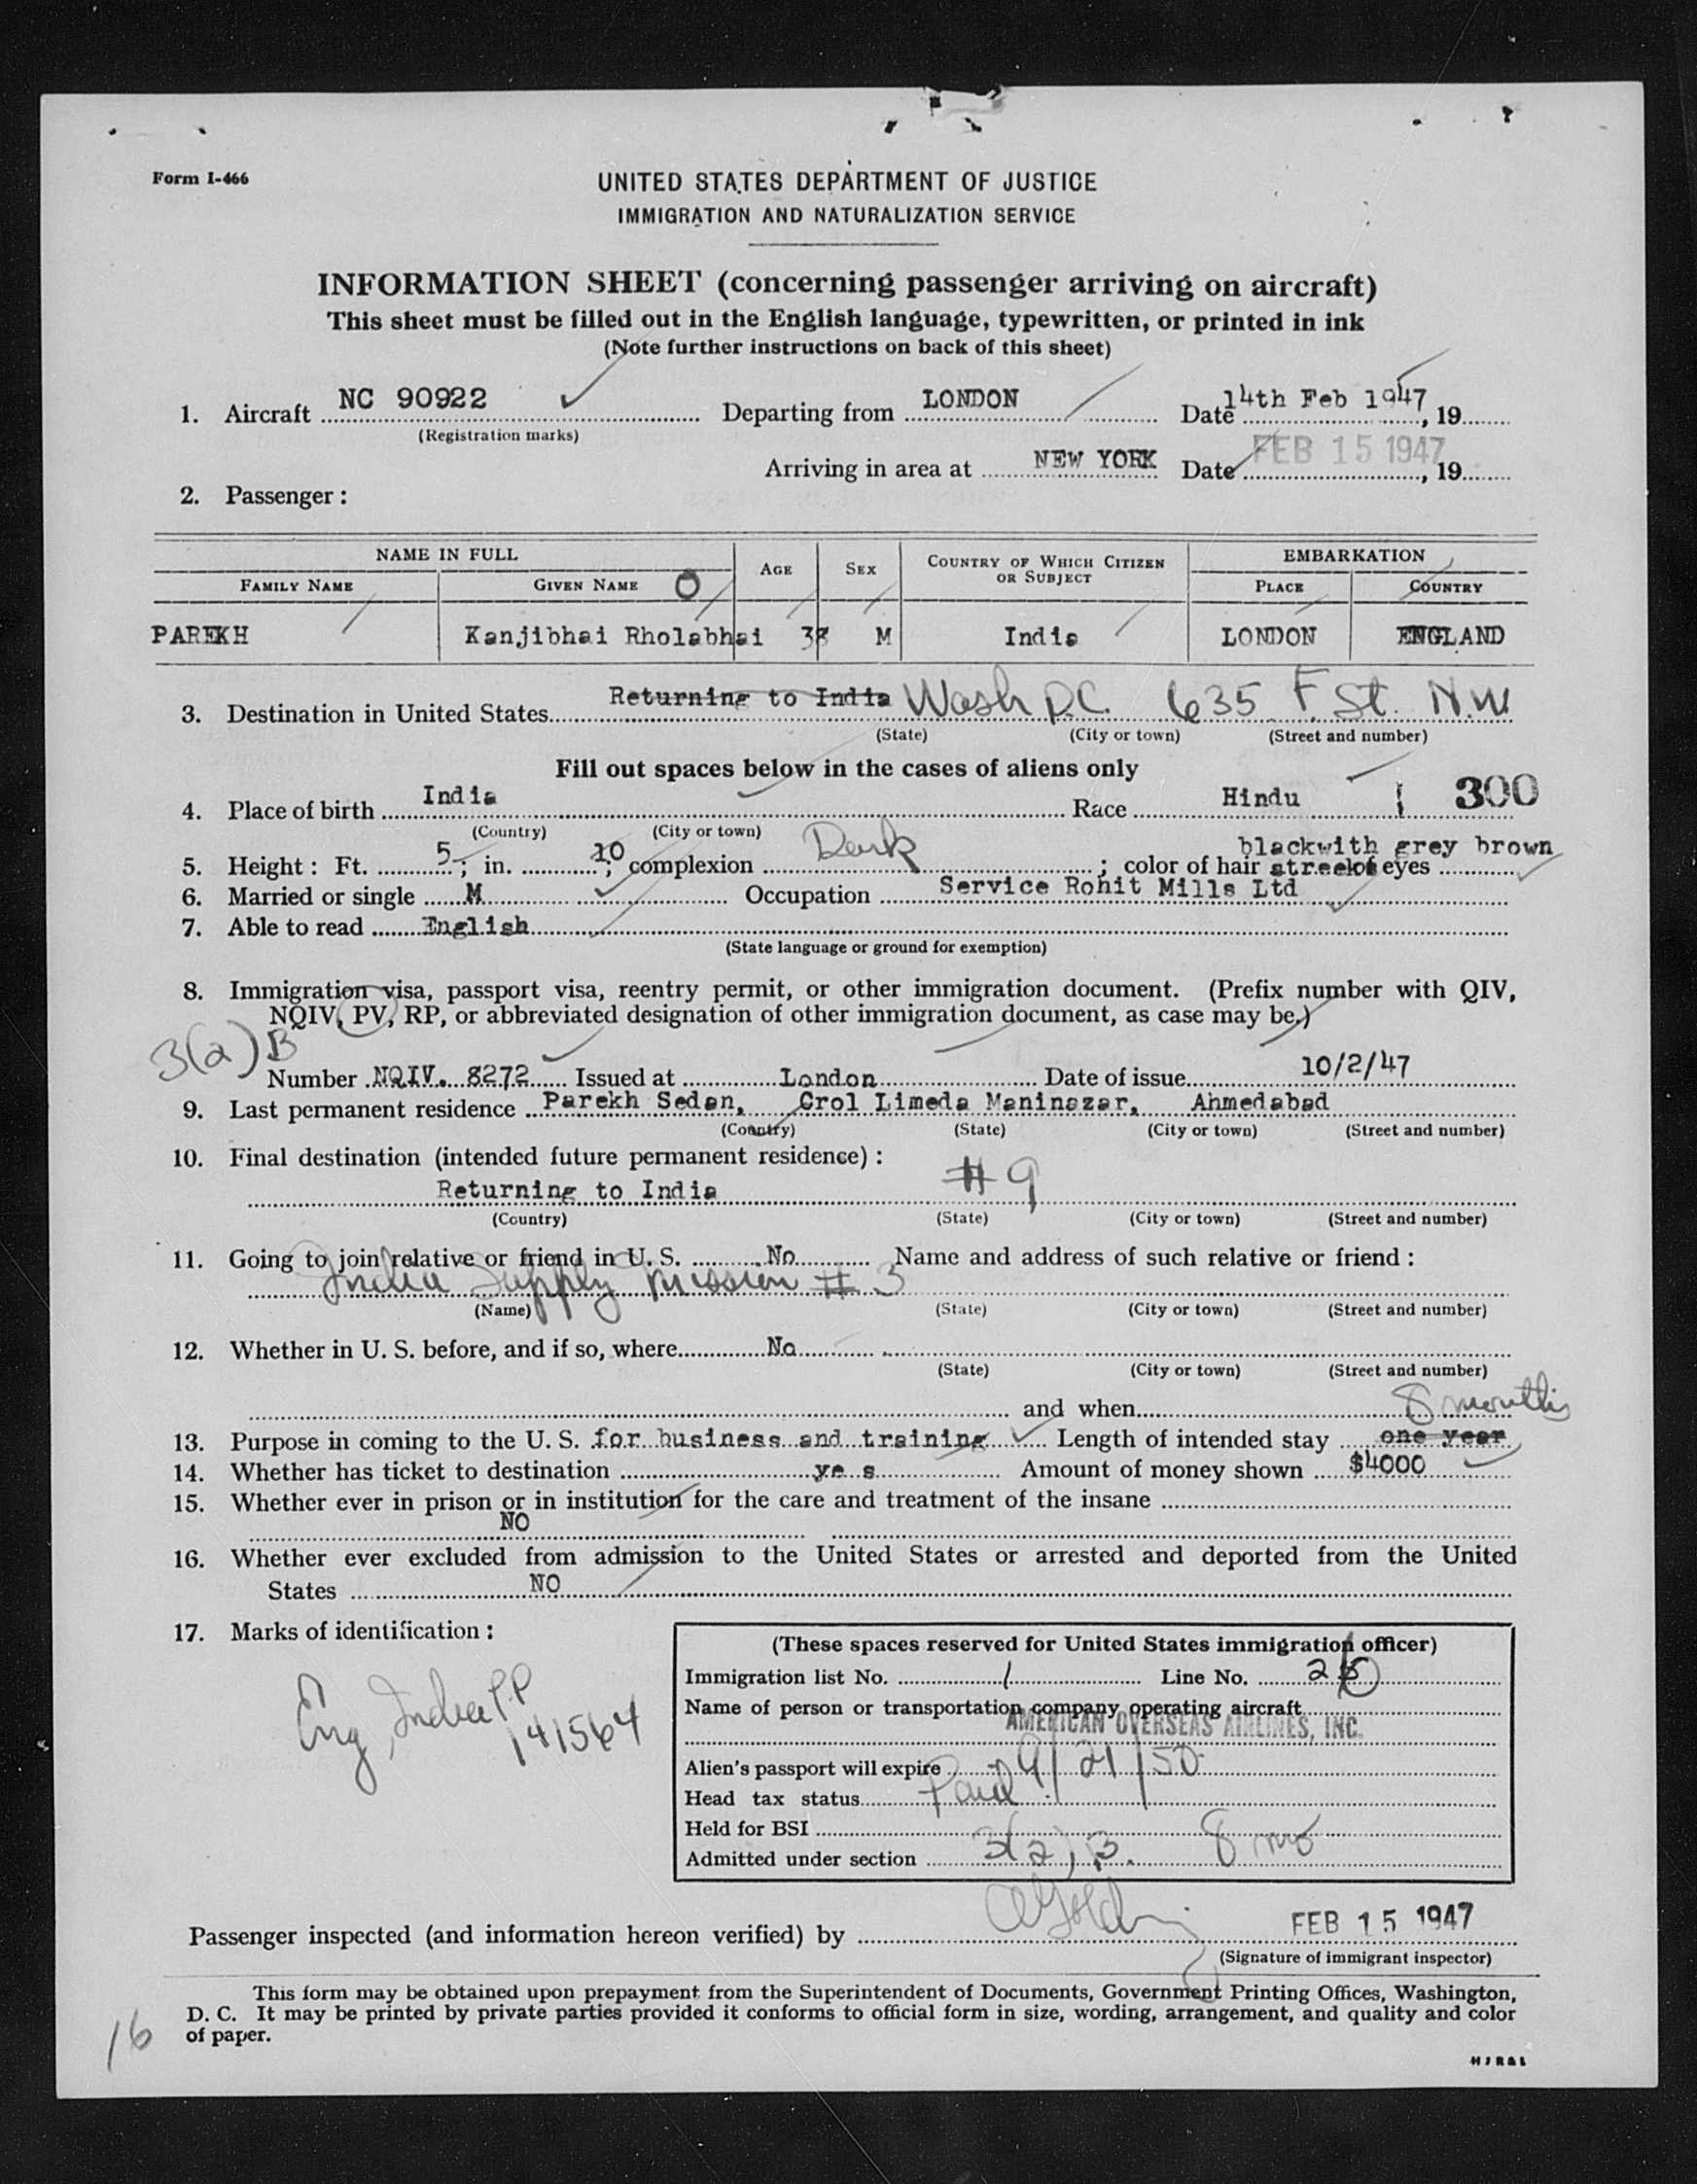 Form I-466
UNITED STATES DEPARTMENT OF JUSTICE
IMMIGRATION AND NATURALIZATION SERVICE
INFORMATION SHEET (concerning passenger arriving on aircraft)
This sheet must be filled out in the English language, typewritten, or printed in ink
(Note further instructions on back of this sheet)
1. Aircraft NC 90922 Departing from LONDON Date 14th Feb 1947, 19
(Registration marks)
Arriving in area at NEW YORK Date FEB 15 1947, 19
2. Passenger:
NAME IN FULL AGE SEX COUNTRY OF WHICH CITIZEN OR SUBJECT EMBARKATION
FAMILY NAME GIVEN NAME PLACE COUNTRY
PAREKH Kanjibhai Rholabhai 38 M India LONDON ENGLAND
3. Destination in United States Returning to India Wash D.C. 635 F. St. N.W
(State) (City or town) (Street and number)
Fill out spaces below in the cases of aliens only
4. Place of birth India Race Hindu 300
(Country) (City or town)
5. Height: Ft. 5; in. 10; complexion Dark; color of hair blackwith grey streeks of eyes brown
6. Married or single M Occupation Service Rohit Mills Ltd
7. Able to read English
(State language or ground for exemption)
8. Immigration visa, passport visa, reentry permit, or other immigration document. (Prefix number with QIV,
NQIV, PV, RP, or abbreviated designation of other immigration document, as case may be.)
3(2) B
Number NQIV. 8272 Issued at London Date of issue 10/2/47
9. Last permanent residence Parekh Sedan, Crol Limeda Maninazar, Ahmedabad
(Country) (State) (City or town) (Street and number)
10. Final destination (intended future permanent residence):
Returning to India #9
(Country) (State) (City or town) (Street and number)
11. Going to join relative or friend in U. S. No Name and address of such relative or friend:
India Supply Mission #3
(Name) (State) (City or town) (Street and number)
12. Whether in U. S. before, and if so, where No
(State) (City or town) (Street and number)
and when 8 months
13. Purpose in coming to the U. S. for business and training Length of intended stay one year
14. Whether has ticket to destination ye s Amount of money shown $4000
15. Whether ever in prison or in institution for the care and treatment of the insane
NO
16. Whether ever excluded from admission to the United States or arrested and deported from the United
States NO
17. Marks of identification:
Eng, India P.P
141564
(These spaces reserved for United States immigration officer)
Immigration list No. 1 Line No. 2
Name of person or transportation company operating aircraft
AMERICAN OVERSEAS AIRLINES, INC.
Alien's passport will expire 9/21/50
Head tax status Paid
Held for BSI
Admitted under section 3(2) B. 8 mo
Passenger inspected (and information hereon verified) by FEB 15 1947
(Signature of immigrant inspector)
This form may be obtained upon prepayment from the Superintendent of Documents, Government Printing Offices, Washington,
D. C. It may be printed by private parties provided it conforms to official form in size, wording, arrangement, and quality and color
of paper.
16